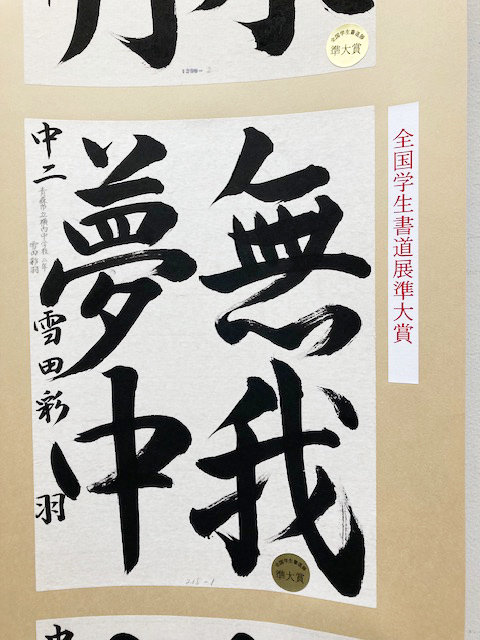 1296-2
全国学生書道展
準大賞
全国学生書道展準大賞
無我
夢中
中二 雪田彩羽
青森市立横内中学校 二年
雪田彩羽
215-8
全国学生書道展
準大賞
中